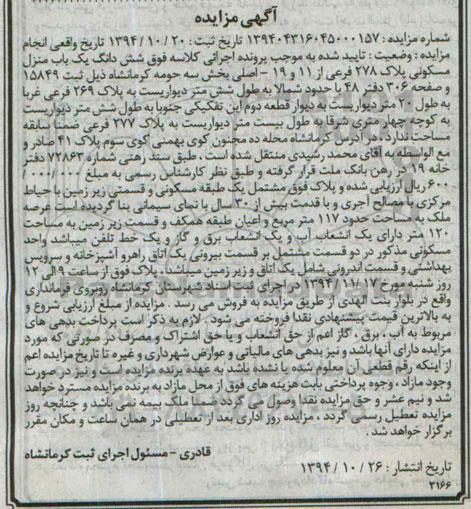 آگهی مزایده
شماره مزایده : ۱۳۹۴۰۴۳۱۶۰۴۵۰۰۰۱۵۷ تاریخ ثبت : ۲۰ / ۱۰ / ۱۳۹۴ تاریخ واقعی انجام
مزایده : وضعیت : تایید شده به موجب پرونده اجرائی کلاسه فوق شش دانگ یک باب منزل
مسکونی پلاک ۲۷۸ فرعی از ۱۱ و ۱۹ - اصلی بخش سه حومه کرمانشاه ذیل ثبت ۱۵۸۴۹
و صفحه ۳۰۶ دفتر ۴۸ با حدود شمالا به طول شش متر دیواریست به پلاک ۲۶۹ فرعی غربا
به طول ۲۰ متر دیواریست به دیوار قطعه دوم این تفکیکی جنوبا به طول شش متر دیواریست
به کوچه چهار متری شرقا به طول بیست متر دیواریست به پلاک ۲۷۷ فرعی ضمنا سابقه
مساحت ندارد به آدرس کرمانشاه محله ده مجنون کوی بهمنی کوی سوم پلاک ۴۱ صادر و
مع الواسطه به آقای محمد رشیدی منتقل شده است ، طبق سند رهنی شماره ۷۲۸۶۳ دفتر
خانه ۱۹ در رهن بانک ملت قرار گرفته و طبق نظر کارشناس رسمی به مبلغ ۰۰۰/۰۰۰/
۶۰۰ ریال ارزیابی شده و پلاک فوق مشتمل یک طبقه مسکونی و قسمتی زیر زمین با حیاط
مرکزی با مصالح آجری و با قدمت بیش از ۳۰ سال با نمای سیمانی بنا گردیده است عرصه
ملک به مساحت حدود ۱۱۷ متر مربع و اعیان طبقه همکف و قسمت زیر زمین به مساحت
۱۲۰ متر دارای یک انشعاب آب و یک انشعاب برق و گاز و یک خط تلفن میباشد واحد
مسکونی مذکور در دو قسمت مشتمل بر قسمت بیرونی یک اتاق راهرو آشپزخانه و سرویس
بهداشتی و قسمت اندرونی شامل یک اتاق و زیر زمین میباشد. پلاک فوق از ساعت ۹ الی ۱۲
روز شنبه مورخ ۱۷ / ۱۱ / ۱۳۹۴ در اجرای ثبت اسناد شهرستان کرمانشاه روبروی فرمانداری
واقع در بلوار بنت الهدی از طریق مزایده به فروش می رسد . مزایده از مبلغ ارزیابی شروع و
به بالاترین قیمت پیشنهادی نقدا فروخته می شود . لازم به ذکر است پرداخت بدهی های
مربوط به آب ، برق ، گاز اعم از حق انشعاب و یا حق اشتراک و مصرف در صورتی که مورد
مزایده دارای آنها باشد و نیز بدهی های مالیاتی و عوارض شهرداری و غیره تا تاریخ مزایده اعم
از اینکه رقم قطعی آن معلوم شده یا نشده باشد به عهده برنده مزایده است و نیز در صورت
وجود مازاد ، وجوه پرداختی بابت هزینه های فوق از محل مازاد به برنده مزایده مسترد خواهد
شد و نیم عشر و حق مزایده نقدا وصول می گردد ضمنا ملک بیمه نمی باشد و چنانچه روز
مزایده تعطیل رسمی گردد ، مزایده روز اداری بعد از تعطیلی در همان ساعت و مکان مقرر
برگزار خواهد شد .
قادری - مسئول اجرای ثبت کرمانشاه
تاریخ انتشار : ۲۶ / ۱۰ / ۱۳۹۴
۳۱۶۶